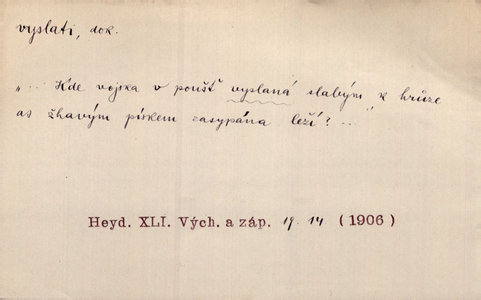 vyslati, dok.
„... Kde vojska v poušť vyslaná slabým k hrůze
as žhavým pískem zasypána leží? ..."
Heyd. XLI. Vých. a záp. 19. 14 (1906)